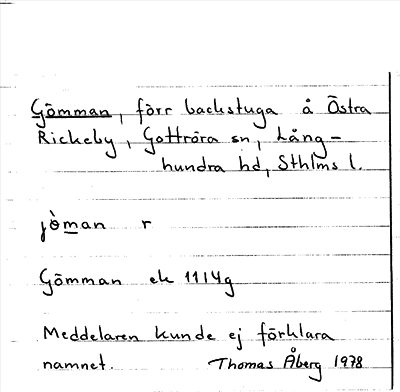 Gömman, förr backstuga å Östra
Rickeby, Gottröra sn, Lång-
hundra hd, Sthlms l.
jò̱man r
Gömman ek 11I4g
Meddelaren kunde ej förklara
namnet. Thomas Åberg 1978